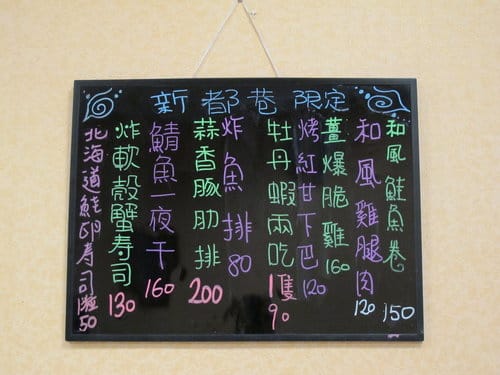 新都巷限定
和風鮭魚卷 150
和風雞腿肉 120
薑爆脆雞 160
烤紅甘下巴 120
牡丹蝦兩吃 1隻90
炸魚排 80
蒜香豚肋排 200
鯖魚一夜干 160
炸軟殼蟹壽司 130
北海道鮭卵壽司1粒50